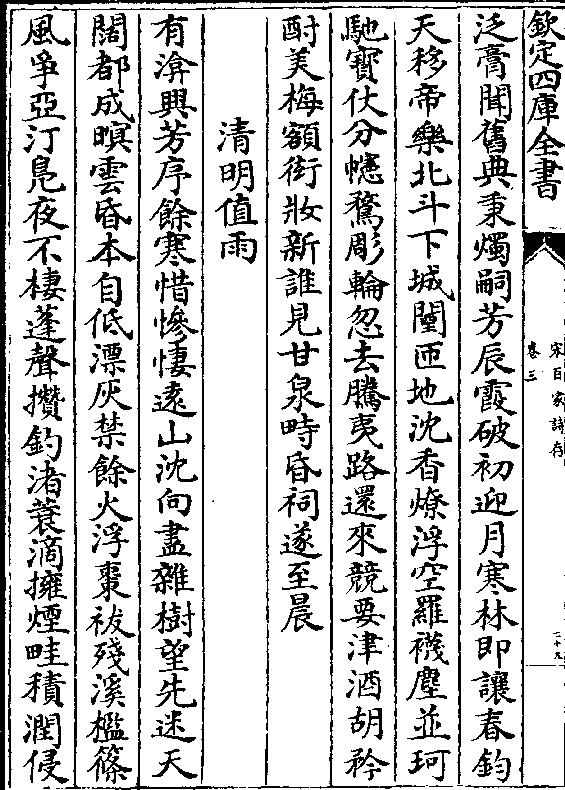 欽定四庫全書
宋百家詩存
卷三
泛膏聞舊典秉燭嗣芳辰霞破初迎月寒林即讓春鈞
天移帝樂北斗下城闉匝地沈香燎浮空羅襪塵並珂
馳寶仗分幰騖彫輪忽去騰夷路還來競要津酒胡矜
酎美梅額街妝新誰見甘泉畤昏祠遂至晨
清明值雨
有渰興芳序餘寒惜慘悽遠山沈向盡雜樹望先迷天
闊都成暝雲昏本自低漂灰禁餘火浮棗祓殘溪檻篠
風爭亞汀鳧夜不棲蓬聲攢釣渚蓑滴擁煙畦積潤侵